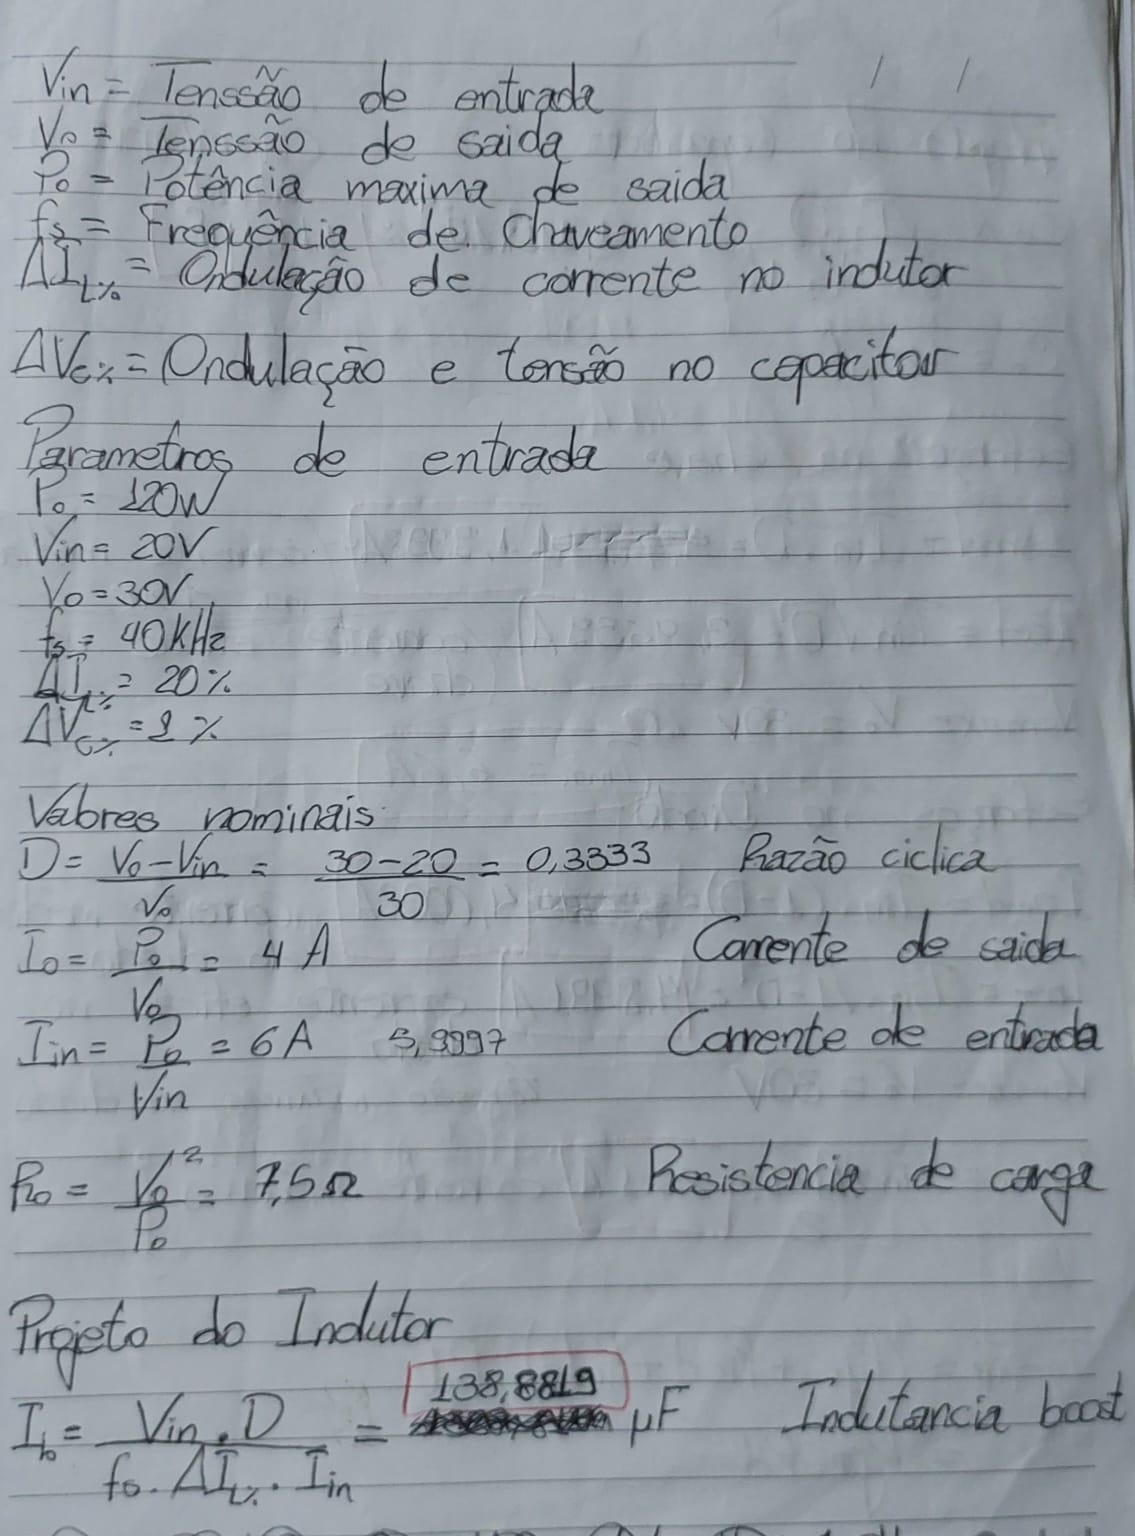 / /
Vin = Tenssão de entrada
Vo = Tenssão de saida
Po = Potência maxima de saida
fs = Frequência de Chaveamento
ΔIL% = Ondulação de corrente no indutor
ΔVc% = Ondulação e tensão no capacitor
Parametros de entrada
Po = 120W
Vin = 20V
Vo = 30V
fs = 40KHz
ΔIL% = 20%
ΔVc% = 1%
Valores nominais:
D = Vo - Vin / Vo = 30 - 20 / 30 = 0,3333 Razão ciclica
Io = Po / Vo = 4 A Corrente de saida
Iin = Po / Vin = 6A 5,9997 Corrente de entrada
Ro = Vo² / Po = 7,5Ω Resistencia de carga
Projeto do Indutor
Ib = Vin . D / fs . ΔIL% . Iin = 138,8819 μF Indutancia boost